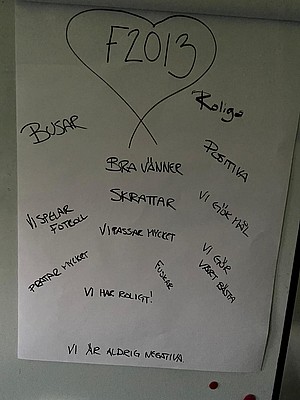 F2013
Roliga
BUSAR
POSITIVA
BRA VÄNNER
SKRATTAR
VI GÖR MÅL
VI SPELAR
FOTBOLL
VI PASSAR MYCKET
PRATAR MYCKET
FUSKAR
VI GÖR
VÅRT BÄSTA
VI HAR ROLIGT!
VI ÄR ALDRIG NEGATIVA